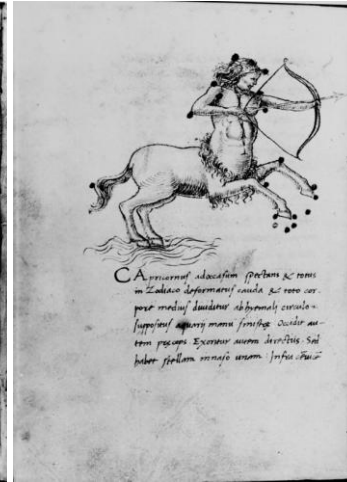 CApricornus adoccasum spectans & totus
in Zodiaco deformatus cauda & toto cor-
pore medius diuiditur ab hyemali circulo.
suppositus aquarij manu sinistrę Occidit au-
tem pręceps Exoritur autem directus. Sed
habet stellam in naso unam. Infra